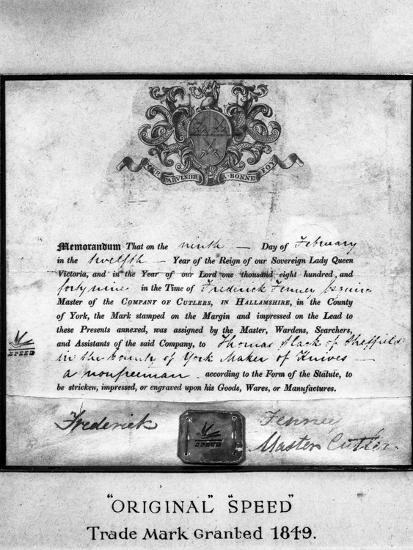 POUR Y PARVENIR A BONNE FOY
Memorandum That on the ninth Day of February
in the twelfth Year of the Reign of our Sovereign Lady Queen
Victoria, and in the Year of our Lord one thousand eight hundred, and
forty nine in the Time of Frederick Fenney Esquire
Master of the COMPANY OF CUTLERS, IN HALLAMSHIRE, in the County
of York, the Mark stamped on the Margin and impressed on the Lead to
these Presents annexed, was assigned by the Master, Wardens, Searchers,
and Assistants of the said Company, to Thomas Slack of Sheffield
in the County of York Maker of Knives
a nonfreeman according to the Form of the Statute, to
be stricken, impressed, or engraved upon his Goods, Wares, or Manufactures.
SPEED
Frederick Fenney
SPEED
Master Cutler
"ORIGINAL" "SPEED"
Trade Mark Granted 1849.